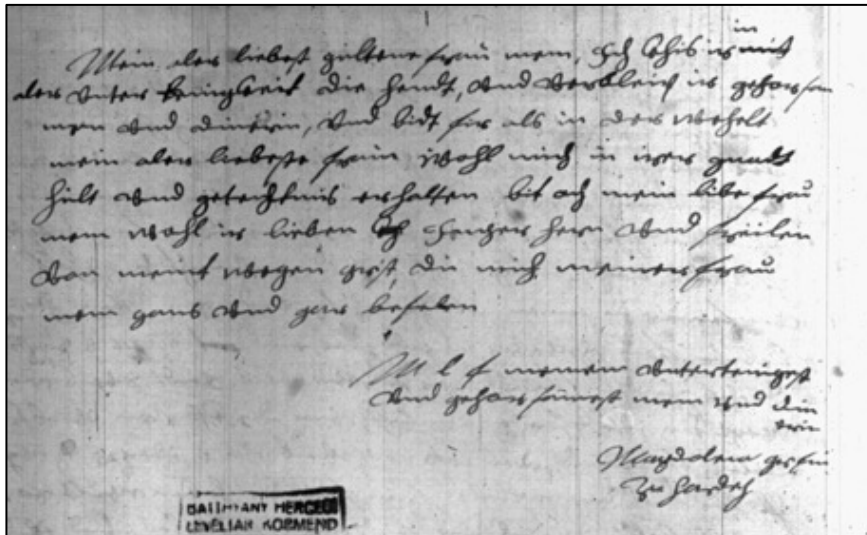 in
Mein aler liebest gultene frau mem, Ich khis ir mit
aler unter die hendt, und verbleib ir gehorsam
men und dinerin, und bidt fir als in der wehelt
mein aler liebeste frau wohl mich in irer gnadt
hult und getechtnis erhalten bit och mein libe frau
mem wohl ir lieben hern und freilen
von meint wegen du mich meiner frau
mem gans und gar befelen
M l f memem untertenigest
und gehorsamest mem und din
erin
Magdalena gefin
zu Hardeh
BATTHYANY HERCEGI
LEVÉLTÁR KÖRMEND